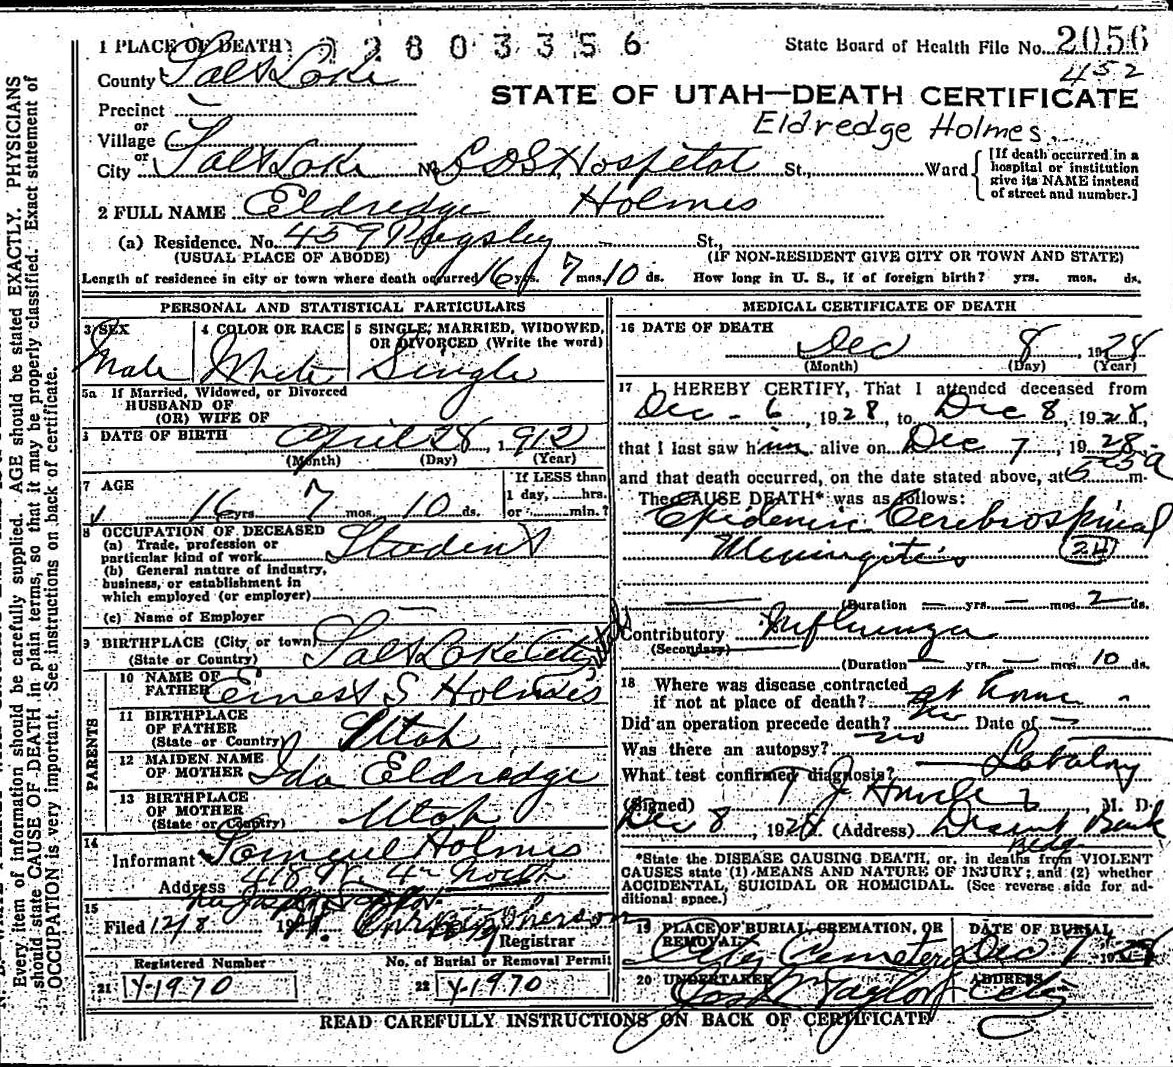 1 PLACE OF DEATH 22803356 State Board of Health File No. 2056
452
County Salt Lake
STATE OF UTAH—DEATH CERTIFICATE
Precinct
or
Eldredge Holmes
Village
or
City Salt Lake No. L D S Hospital St., Ward [If death occurred in a hospital or institution give its NAME instead of street and number.]
2 FULL NAME Eldredge Holmes
(a) Residence. No. 459 Pugsley St.,
(USUAL PLACE OF ABODE) (IF NON-RESIDENT GIVE CITY OR TOWN AND STATE)
Length of residence in city or town where death occurred 16 yrs. 7 mos. 10 ds. How long in U. S., if of foreign birth? yrs. mos. ds.
PERSONAL AND STATISTICAL PARTICULARS
3 SEX 4 COLOR OR RACE 5 SINGLE, MARRIED, WIDOWED,
OR DIVORCED (Write the word)
Male White Single
5a If Married, Widowed, or Divorced
HUSBAND OF
(OR) WIFE OF
DATE OF BIRTH April 28, 1912
(Month) (Day) (Year)
7 AGE If LESS than
16 yrs. 7 mos. 10 ds. 1 day, hrs.
or min.?
8 OCCUPATION OF DECEASED
(a) Trade, profession or
particular kind of work Student
(b) General nature of industry,
business, or establishment in
which employed (or employer)
(c) Name of Employer
9 BIRTHPLACE (City or town) Salt Lake City Utah
(State or Country)
PARENTS
10 NAME OF
FATHER Ernest S Holmes
11 BIRTHPLACE
OF FATHER
(State or Country) Utah
12 MAIDEN NAME
OF MOTHER Ida Eldredge
13 BIRTHPLACE
OF MOTHER
(State or Country) Utah
14
Informant Samuel Holmes
Address 418 W. 4th North
15
Filed 12/8 19
Registrar
Registered Number No. of Burial or Removal Permit
21 Y-1970 22 Y-1970
MEDICAL CERTIFICATE OF DEATH
16 DATE OF DEATH
Dec 8, 1928
(Month) (Day) (Year)
17 I HEREBY CERTIFY, That I attended deceased from
Dec - 6, 1928, to Dec 8, 1928,
that I last saw him alive on Dec 7, 1928
and that death occurred, on the date stated above, at 5 55 a m.
The CAUSE DEATH* was as follows:
Epidemic Cerebrospinal
Meningitis 24
(Duration — yrs. — mos. 2 ds.
Contributory Influenza
(Secondary)
(Duration — yrs. — mos. 10 ds.
18 Where was disease contracted
if not at place of death? at home
Did an operation precede death? no Date of —
Was there an autopsy? no
What test confirmed diagnosis?
(Signed) T J Howells M. D.
Dec 8, 1928. (Address) Deseret Bank
Bldg
*State the DISEASE CAUSING DEATH, or, in deaths from VIOLENT
CAUSES state (1) MEANS AND NATURE OF INJURY; and (2) whether
ACCIDENTAL, SUICIDAL OR HOMICIDAL. (See reverse side for ad-
ditional space.)
19 PLACE OF BURIAL, CREMATION, OR DATE OF BURIAL
REMOVAL
City Cemetery Dec 19
20 UNDERTAKER ADDRESS
Jos Wm Taylor City
READ CAREFULLY INSTRUCTIONS ON BACK OF CERTIFICATE
Every item of information should be carefully supplied. AGE should be stated EXACTLY. PHYSICIANS
should state CAUSE OF DEATH in plain terms, so that it may be properly classified. Exact statement of
OCCUPATION is very important. See instructions on back of certificate.